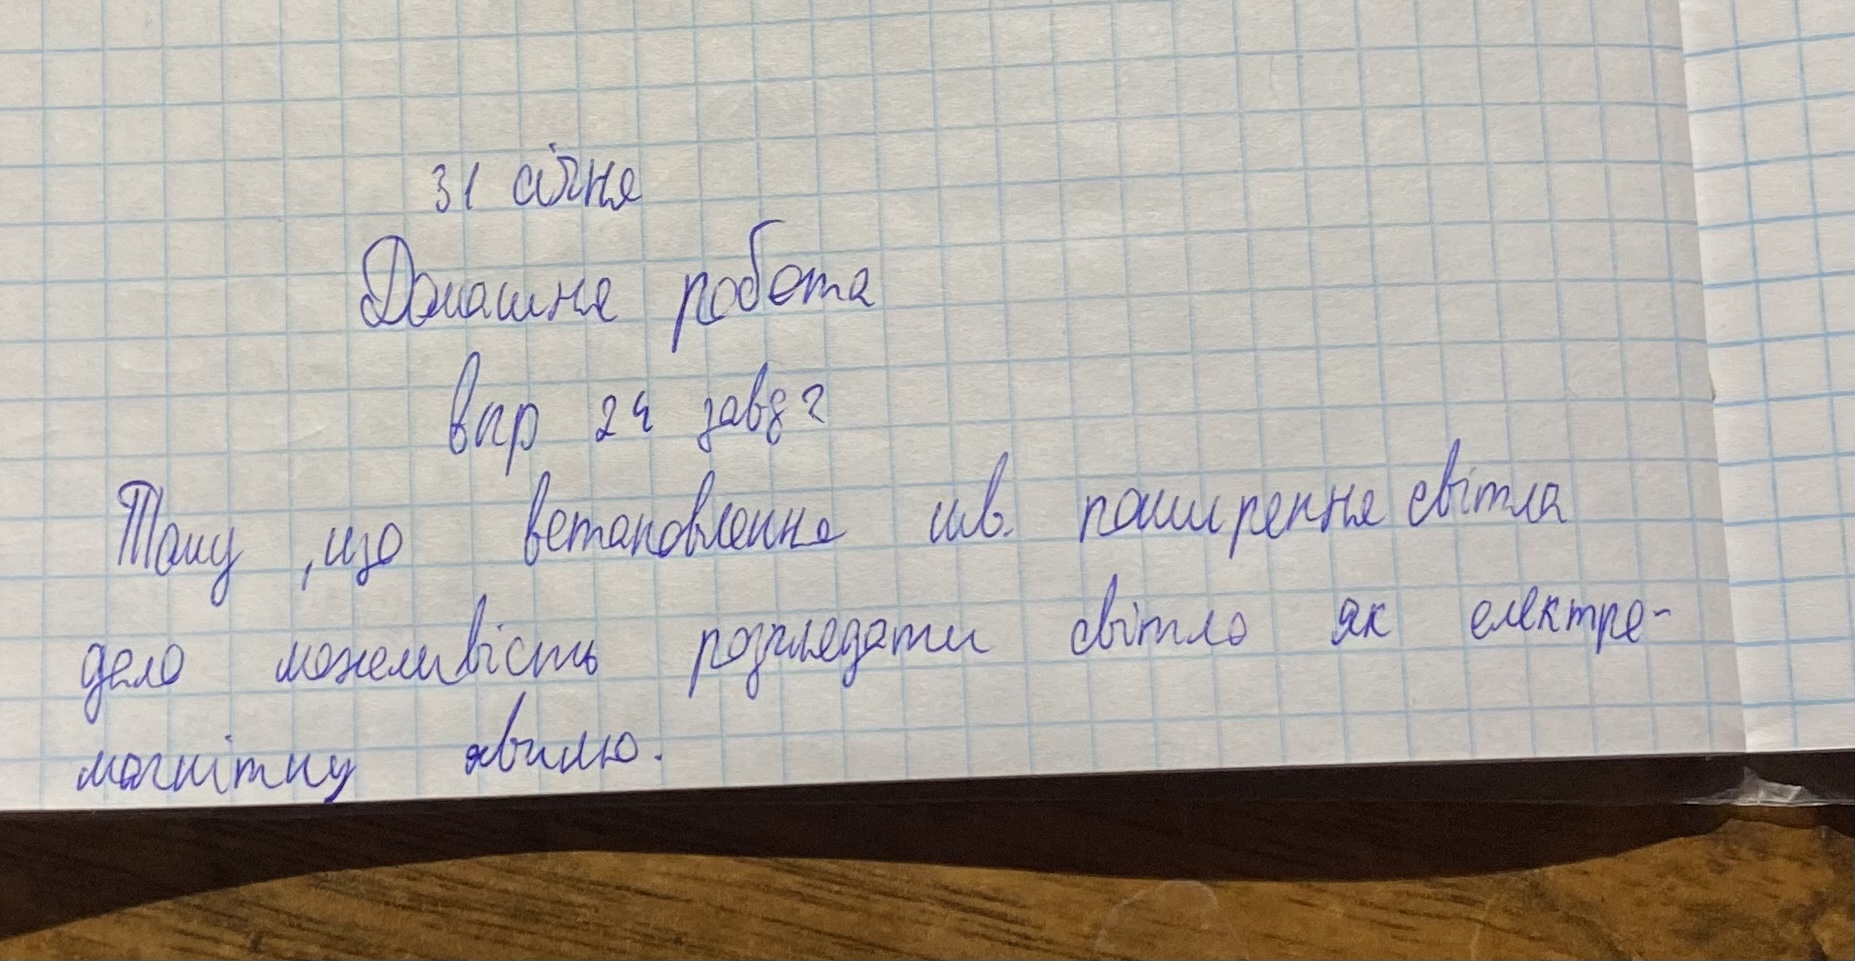 31 січня
Домашня робота
впр 24 завд 2
Тому, що встановлення шв. поширення світла
дало можливість розглядати світло як електро-
магнітну хвилю.